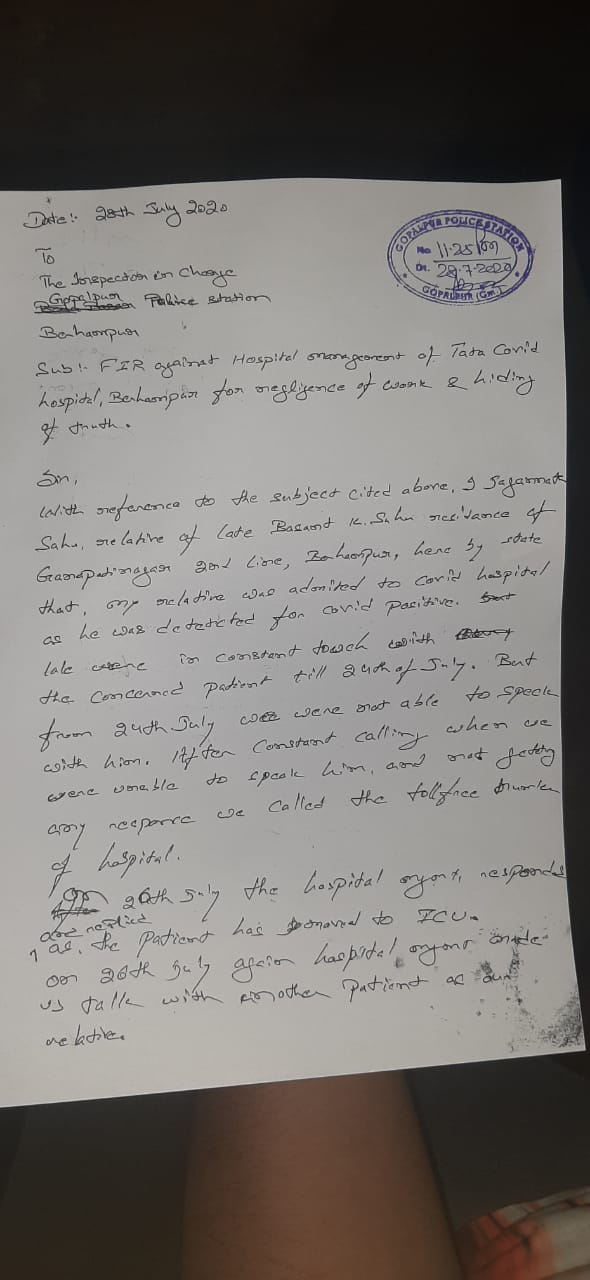 Date:- 28th July 2020
GOPALPUR POLICE STATION
No 11.25
Dt. 28.7.2020
GOPALPUR (Gm.)
To
The Inspector in Charge
Gopalpur
Police station
Berhampur
Sub:- FIR against Hospital management of Tata Covid
hospital, Berhampur for negligence of work & hiding
of truth.
Sir,
With reference to the subject cited above, I Jagannath
Sahu, relative of late Basant K. Sahu residance of
Ganapatinagar 2nd line, Berhampur, here by state
that, my relative was admited to covid hospital
as he was detected for covid Positive.
in constant touch with
the concerned patient till 24th of July. But
from 24th July we were not able to speek
with him. After constant calling when we
were unable to speak him, and not getting
any responce we called the tollfree number
of hospital.
On 26th July the hospital responds
and replied
as, the patient has moved to ICU.
on 26th July again hospital made
us talk with another patient as our
relative.